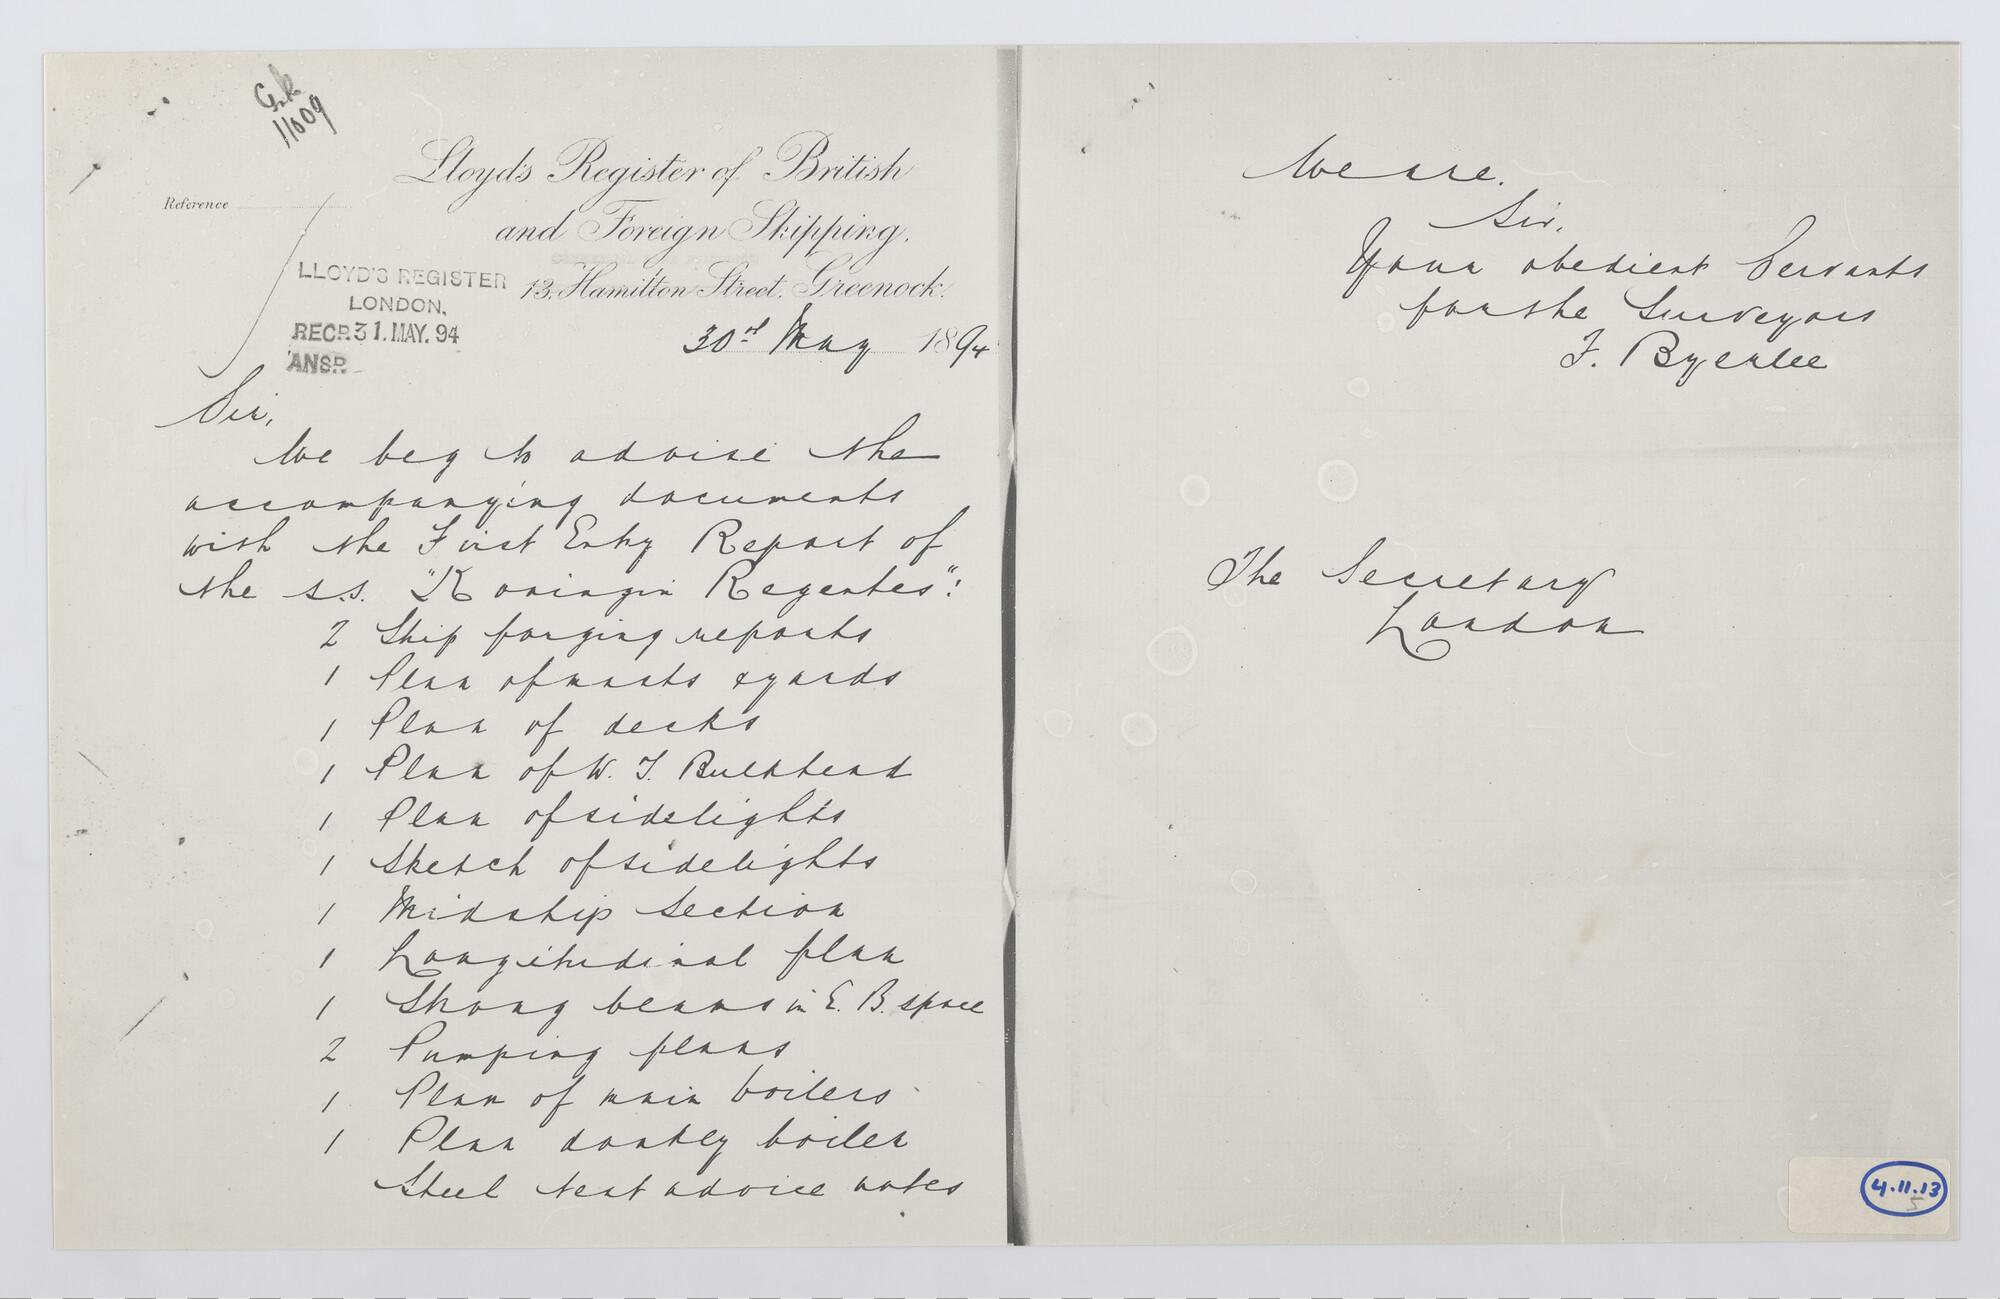 Grk
11009
Lloyd's Register of British
and Foreign Shipping,
Reference
13, Hamilton Street, Greenock.
LLOYD'S REGISTER
LONDON,
RECD. 31. MAY. 94
ANSD.
30th May 1894
Sir,
We beg to advise the
accompanying documents
with the First Entry Report of
the s.s. "Koningin Regentes":
2 Ship forging reports
1 Plan of masts & yards
1 Plan of decks
1 Plan of W. T. Bulkhead
1 Plan of sidelights
1 Sketch of sidelights
1 Midship section
1 Longitudinal plan
1 Strong beams in E. B. space
2 Pumping plans
1 Plan of main boilers
1 Plan donkey boiler
Steel test advice notes
We are.
Sir,
Your obedient Servants
for the Surveyors
F. Byerlee
The Secretary
London
4.11.13
5